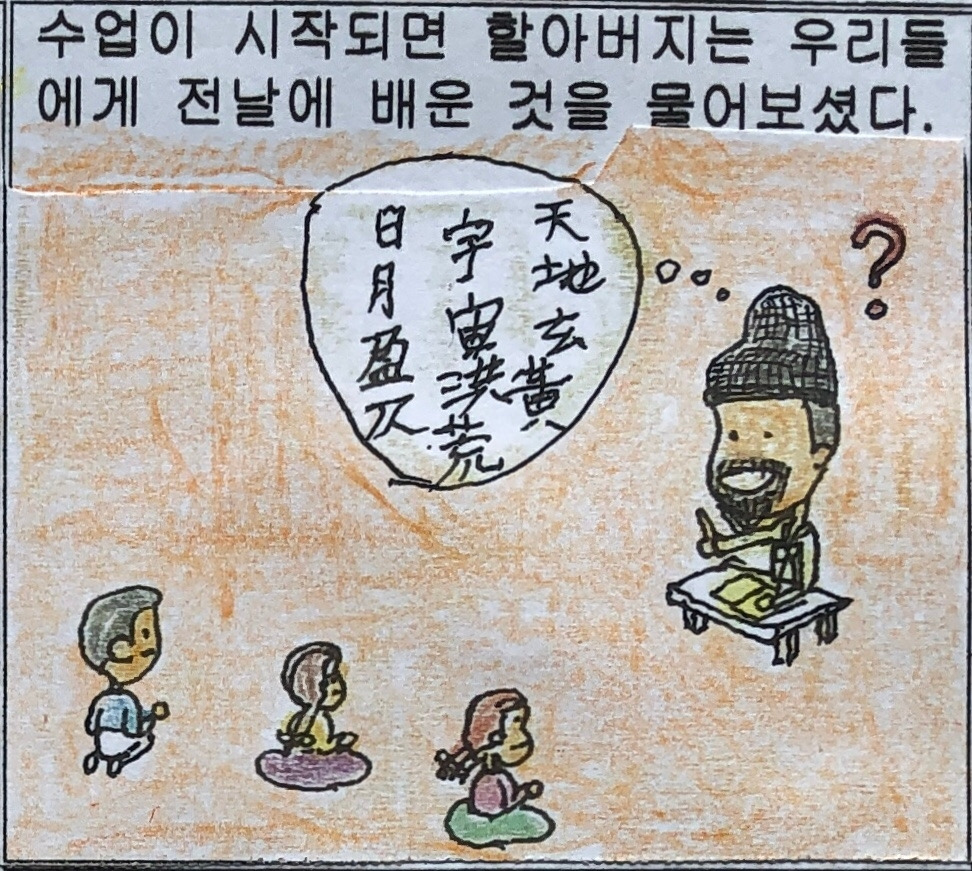 수업이 시작되면 할아버지는 우리들
에게 전날에 배운 것을 물어보셨다.
?
天地玄黃
宇宙洪荒
日月盈仄